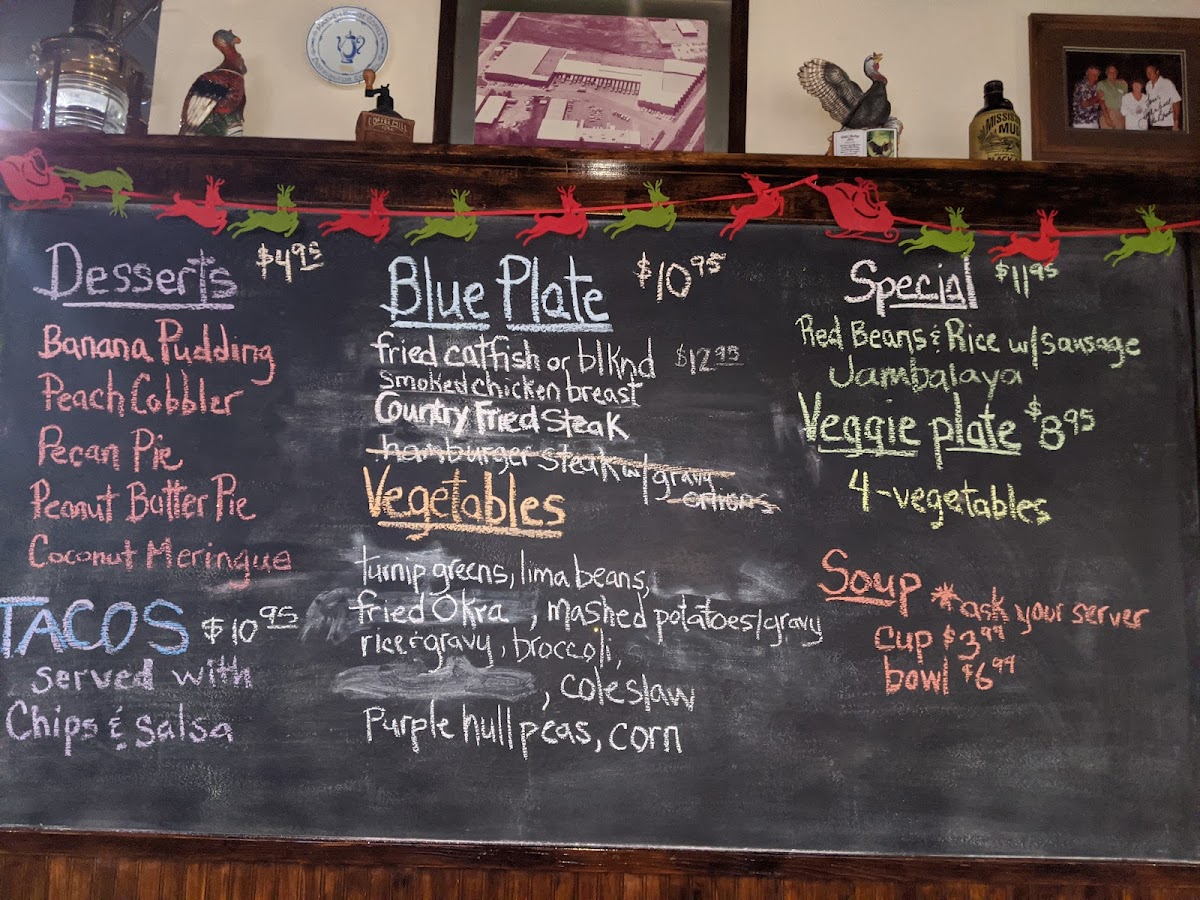 Desserts $4.95
Banana Pudding
Peach Cobbler
Pecan Pie
Peanut Butter Pie
Coconut Meringue
TACOS $10.95
served with
Chips & Salsa
Blue Plate $10.95
fried catfish or blknd $12.95
smoked chicken breast
Country Fried Steak
hamburger steak w/gravy
onions
Vegetables
turnip greens, lima beans,
fried Okra , mashed potatoes/gravy
rice & gravy, broccoli,
, coleslaw
Purple hull peas, corn
Special $11.95
Red Beans & Rice w/sausage
Jambalaya
Veggie plate $8.95
4-vegetables
Soup *ask your server
cup $3.99
bowl $6.99
COFFEE MILL
MISSISSIPPI
MUD
BLACK